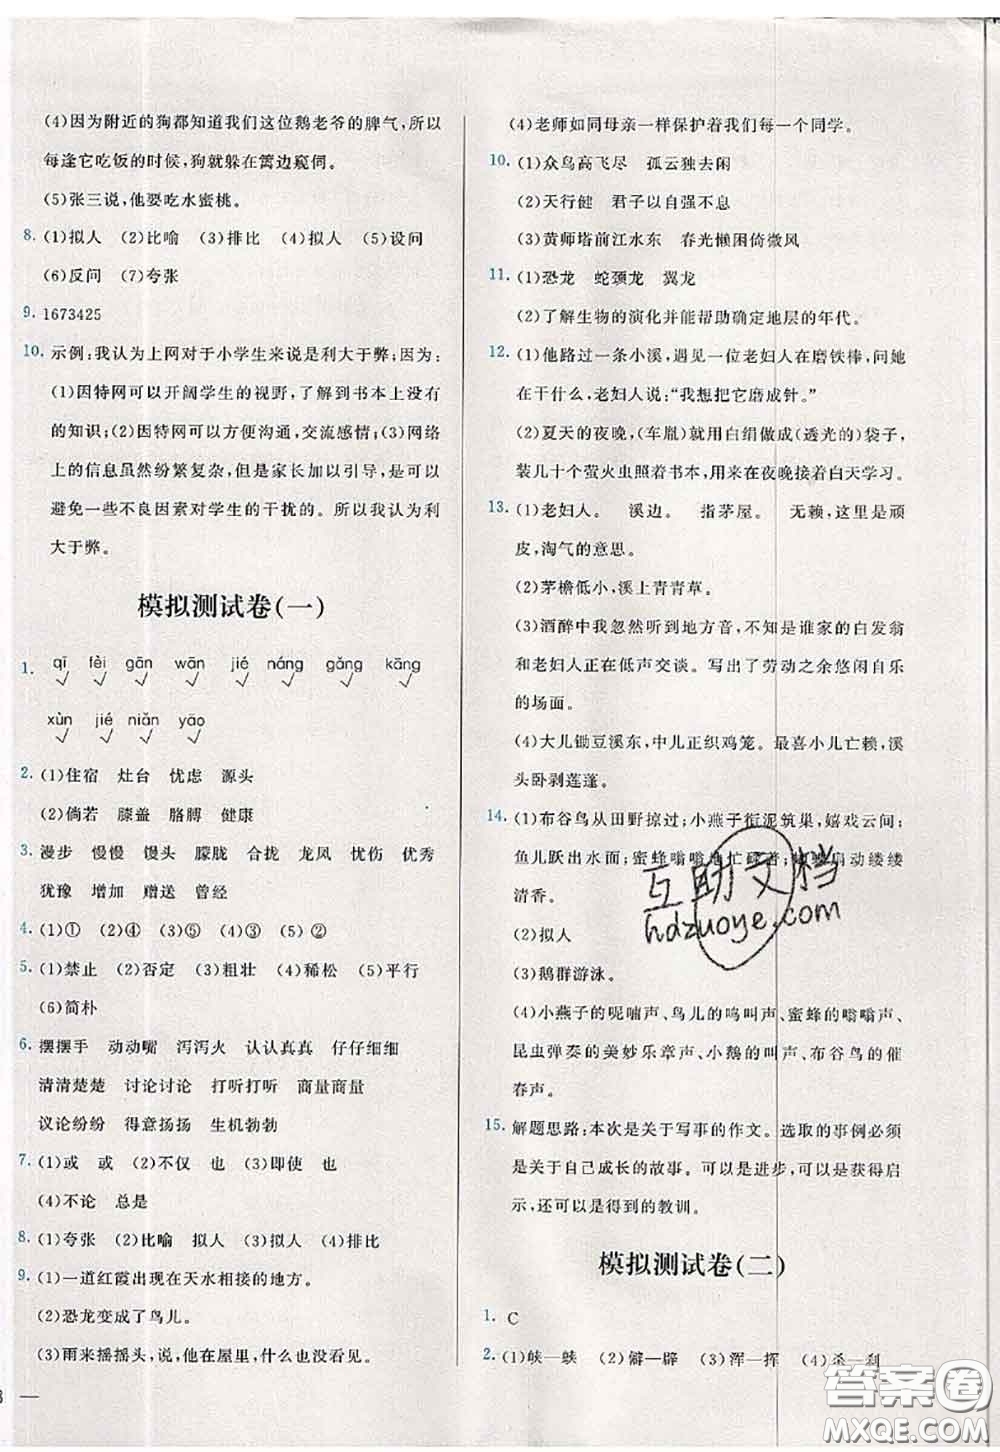 (4)因为附近的狗都知道我们这位鹅老爷的脾气,所以
每逢它吃饭的时候,狗就躲在篱边窥伺。
(5)张三说,他要吃水蜜桃。
8. (1)拟人 (2)比喻 (3)排比 (4)拟人 (5)设问
(6)反问 (7)夸张
9. 1673425
10. 示例:我认为上网对于小学生来说是利大于弊;因为:
(1)因特网可以开阔学生的视野,了解到书本上没有
的知识;(2)因特网可以方便沟通,交流感情;(3)网络
上的信息虽然纷繁复杂,但是家长加以引导,是可以
避免一些不良因素对学生的干扰的。所以我认为利
大于弊。
模拟测试卷(一)
1. qī fèi gān wān jié náng gǎng kāng
√ √ √ √ √ √ √ √
xùn jié niǎn yāo
√ √ √ √
2. (1)住宿 灶台 忧虑 源头
(2)倘若 膝盖 胳膊 健康
3. 漫步 慢慢 馒头 朦胧 合拢 龙凤 忧伤 优秀
犹豫 增加 赠送 曾经
4. (1)① (2)④ (3)⑤ (4)③ (5)②
5. (1)禁止 (2)否定 (3)粗壮 (4)稀松 (5)平行
(6)简朴
6. 摆摆手 动动嘴 泻泻火 认认真真 仔仔细细
清清楚楚 讨论讨论 打听打听 商量商量
议论纷纷 得意扬扬 生机勃勃
7. (1)或 或 (2)不仅 也 (3)即使 也
(4)不论 总是
8. (1)夸张 (2)比喻 拟人 (3)拟人 (4)排比
9. (1)一道红霞出现在天水相接的地方。
(2)恐龙变成了鸟儿。
(3)雨来摇摇头,说,他在屋里,什么也没看见。
(4)老师如同母亲一样保护着我们每一个同学。
10. (1)众鸟高飞尽 孤云独去闲
(2)天行健 君子以自强不息
(3)黄师塔前江水东 春光懒困倚微风
11. (1)恐龙 蛇颈龙 翼龙
(2)了解生物的演化并能帮助确定地层的年代。
12. (1)他路过一条小溪,遇见一位老妇人在磨铁棒,问她
在干什么,老妇人说:“我想把它磨成针。”
(2)夏天的夜晚,(车胤)就用白绢做成(透光的)袋子,
装几十个萤火虫照着书本,用来在夜晚接着白天学习。
13. (1)老妇人。 溪边。 指茅屋。 无赖,这里是顽
皮,淘气的意思。
(2)茅檐低小,溪上青青草。
(3)酒醉中我忽然听到地方音,不知是谁家的白发翁
和老妇人正在低声交谈。写出了劳动之余悠闲自乐
的场面。
(4)大儿锄豆溪东,中儿正织鸡笼。最喜小儿亡赖,溪
头卧剥莲蓬。
14. (1)布谷鸟从田野掠过;小燕子衔泥筑巢,嬉戏云间;
鱼儿跃出水面;蜜蜂嗡嗡地忙碌着;扇动缕缕
清香。
(2)拟人
(3)鹅群游泳。
(4)小燕子的呢喃声、鸟儿的鸣叫声、蜜蜂的嗡嗡声、
昆虫弹奏的美妙乐章声、小鹅的叫声、布谷鸟的催
春声。
15. 解题思路:本次是关于写事的作文。选取的事例必须
是关于自己成长的故事。可以是进步,可以是获得启
示,还可以是得到的教训。
模拟测试卷(二)
1. C
2. (1)峡—蛱 (2)僻—辟 (3)浑—挥 (4)杀—刹
互助文档
hdzuoye.com
答案圈
MXQE.COM